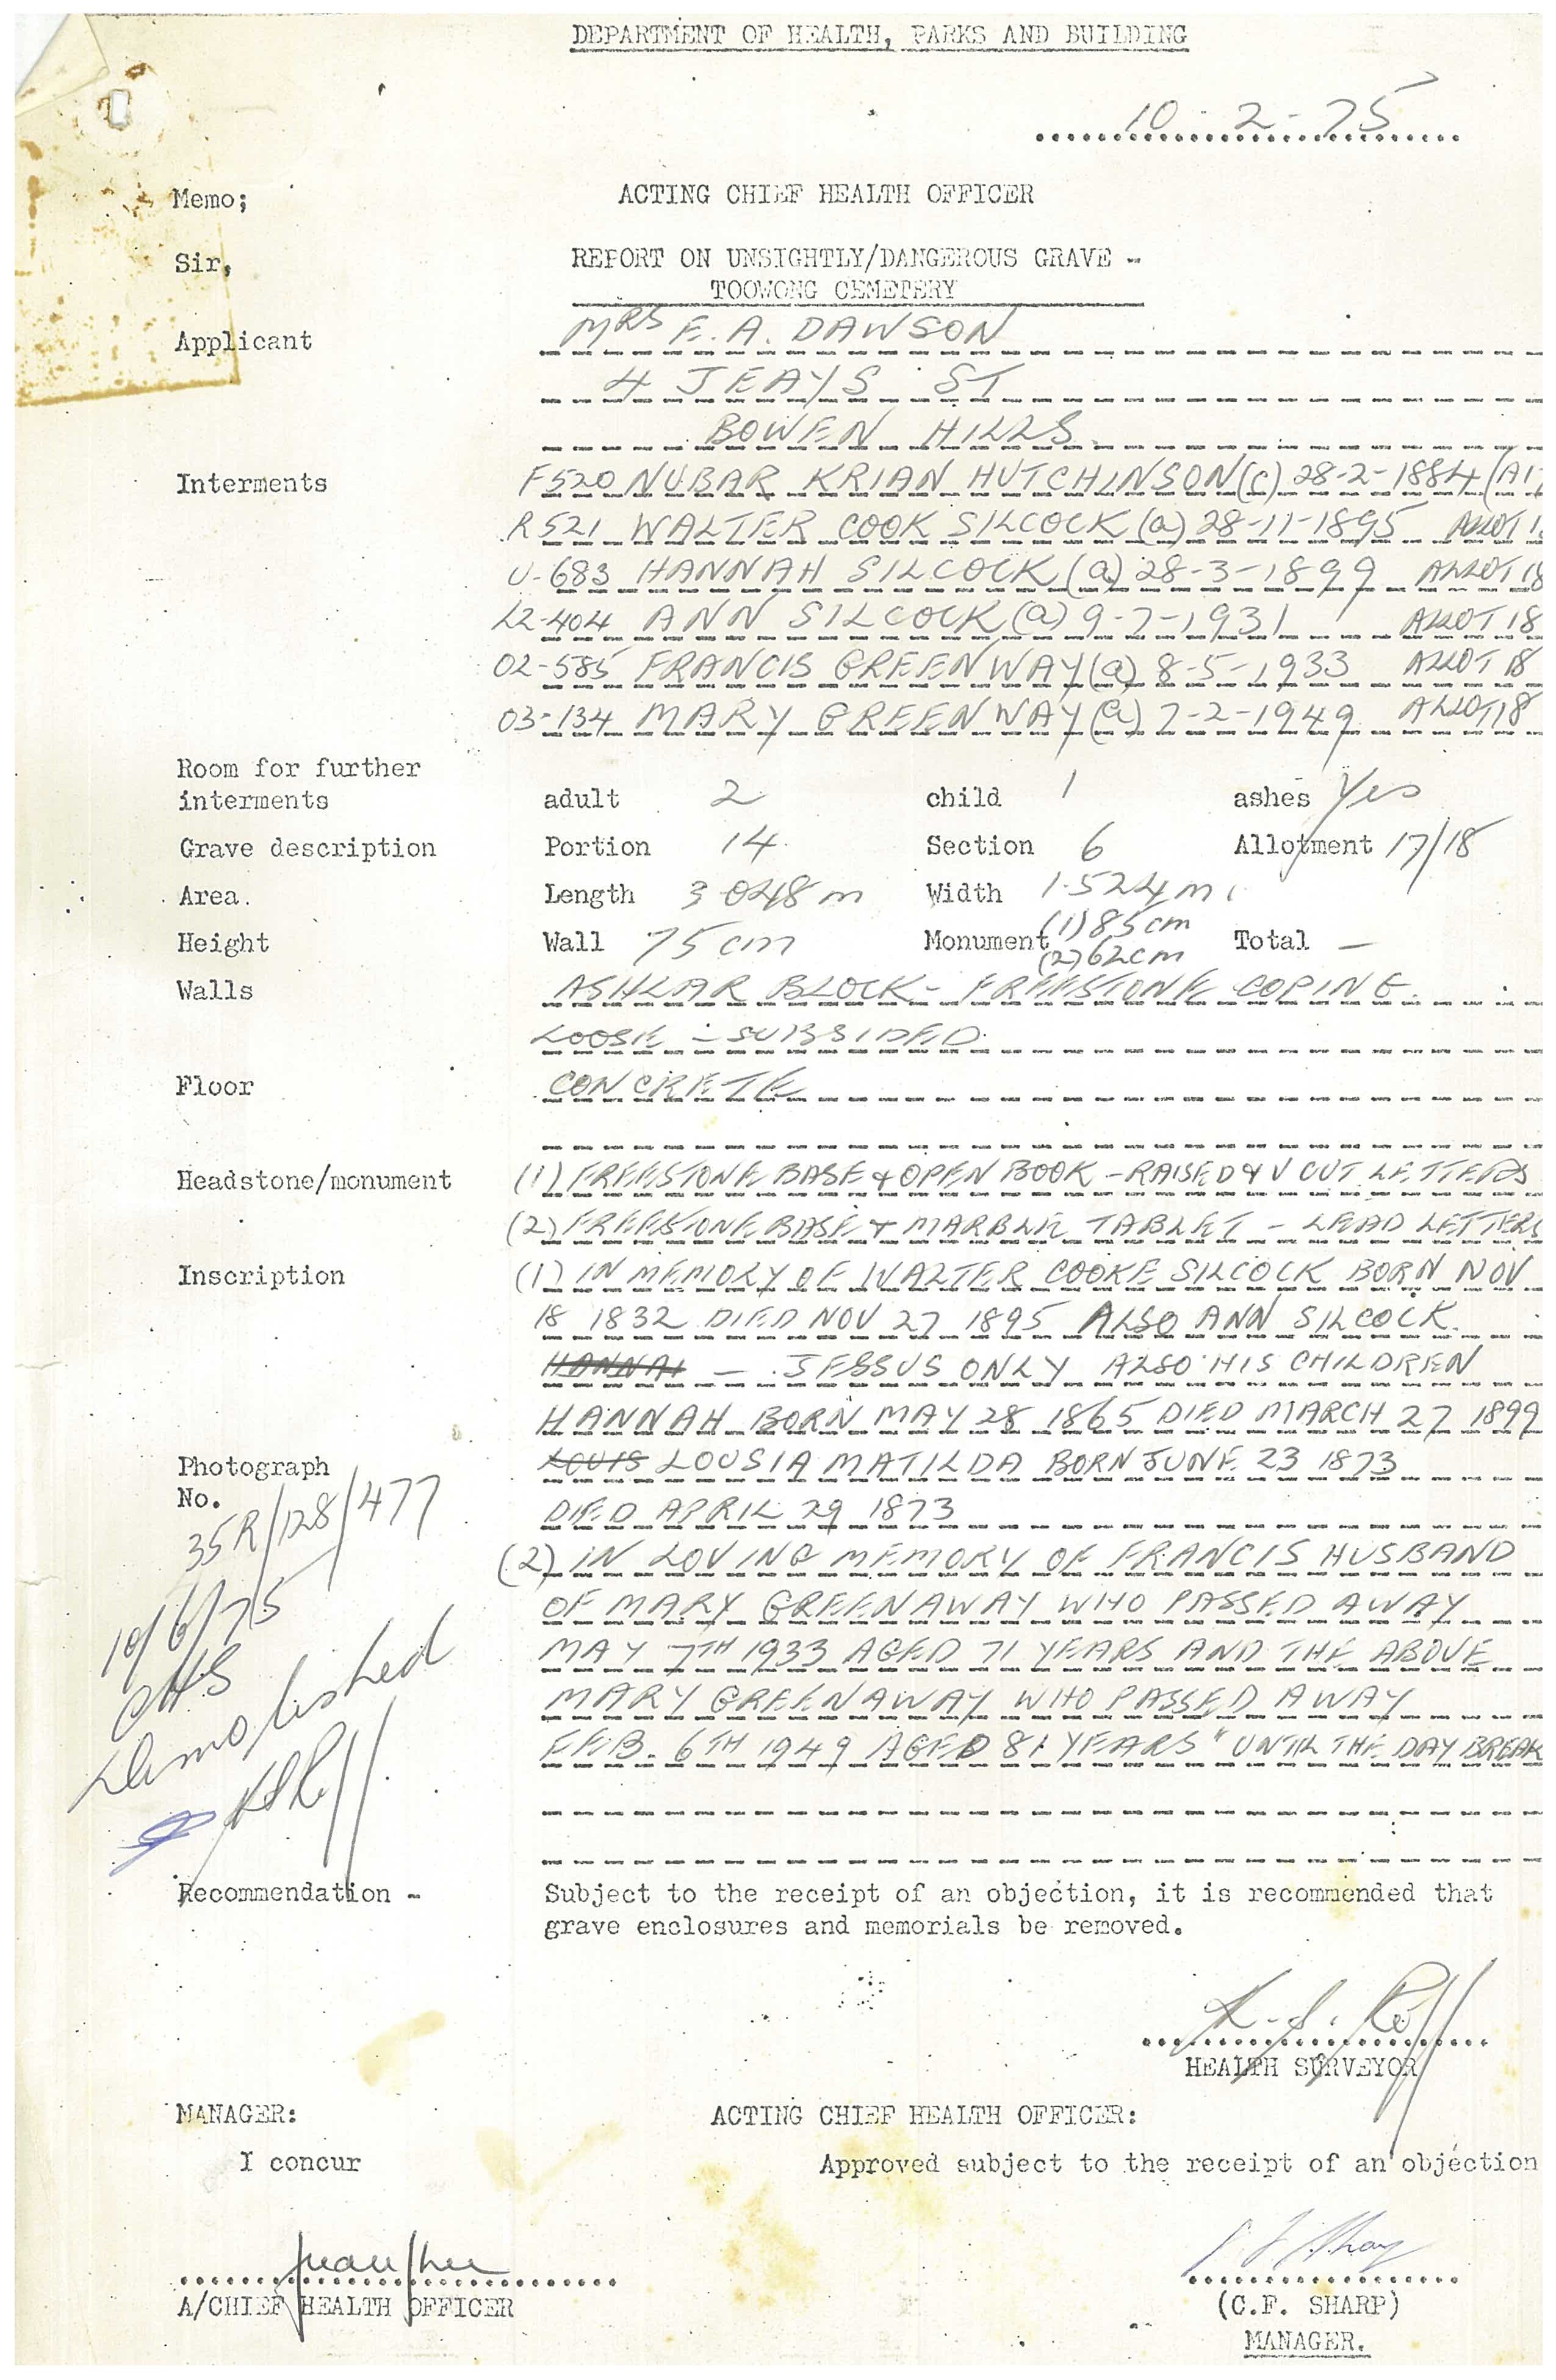 DEPARTMENT OF HEALTH, PARKS AND BUILDING
10-2-75
Memo; ACTING CHIEF HEALTH OFFICER
Sir, REPORT ON UNSIGHTLY/DANGEROUS GRAVE -
TOOWONG CEMETERY
Applicant MRS E. A. DAWSON
4 JEAYS ST
BOWEN HILLS.
Interments F520 NUBAR KRIAN HUTCHINSON (c) 28-2-1884 (A17
R521 WALTER COOK SILCOCK (a) 28-11-1895 ALLOT 18
U-683 HANNAH SILCOCK (a) 28-3-1899 ALLOT 18
L2-404 ANN SILCOCK (a) 9-7-1931 ALLOT 18
O2-585 FRANCIS GREENWAY (a) 8-5-1933 ALLOT 18
O3-134 MARY GREENWAY (a) 7-2-1949 ALLOT 18
Room for further
interments adult 2 child 1 ashes Yes
Grave description Portion 14 Section 6 Allotment 17/18
Area. Length 3 048 m Width 1.524 m
Height Wall 75 cm Monument (1) 85 cm (2) 62 cm Total —
Walls ASHLAR BLOCK - FREESTONE COPING.
LOOSE - SUBSIDED.
Floor CONCRETE
Headstone/monument (1) FREESTONE BASE & OPEN BOOK - RAISED & V CUT LETTERS
(2) FREESTONE BASE & MARBLE TABLET - LEAD LETTERS
Inscription (1) IN MEMORY OF WALTER COOKE SILCOCK BORN NOV
18 1832 DIED NOV 27 1895 ALSO ANN SILCOCK.
HANNAH — JESSUS ONLY ALSO HIS CHILDREN
HANNAH BORN MAY 28 1865 DIED MARCH 27 1899
Photograph LOUIS LOUSIA MATILDA BORN JUNE 23 1873
No. DIED APRIL 29 1873
35R/128/477
(2) IN LOVING MEMORY OF FRANCIS HUSBAND
OF MARY GREENAWAY WHO PASSED AWAY
MAY 7TH 1933 AGED 71 YEARS AND THE ABOVE
MARY GREENAWAY WHO PASSED AWAY
FEB. 6TH 1949 AGED 81 YEARS "UNTIL THE DAY BREAK
10/6/75
Demolished
Recommendation - Subject to the receipt of an objection, it is recommended that
grave enclosures and memorials be removed.
HEALTH SURVEYOR
MANAGER: ACTING CHIEF HEALTH OFFICER:
I concur Approved subject to the receipt of an objection
A/CHIEF HEALTH OFFICER (C.F. SHARP)
MANAGER.